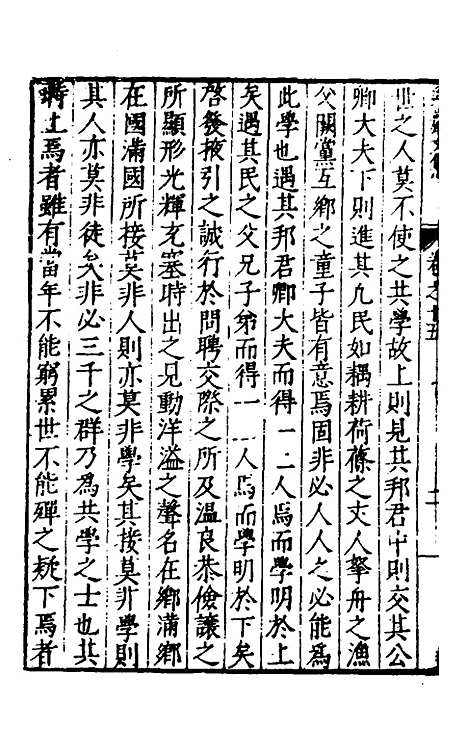 世之人莫不使之共學故上則見其邦君中則交其公
卿大夫下則進其凡民如耦耕荷蓧之丈人拏舟之漁
父闕黨互鄉之童子皆有意焉固非必人人之必能爲
此學也遇其邦君卿大夫而得一二人焉而學明於上
矣遇其民之父兄子弟而得一二人焉而學明於下矣
啓發掖引之誠行於問聘交際之所及溫良恭儉讓之
所顯形光輝充塞時出之見動洋溢之聲名在鄉滿鄉
在國滿國所接莫非人則亦莫非學矣其接莫非學則
其人亦莫非徒矣非必三千之群乃爲共學之士也其
時上焉者雖有當年不能窮累世不能殫之疑下焉者
卷之十五